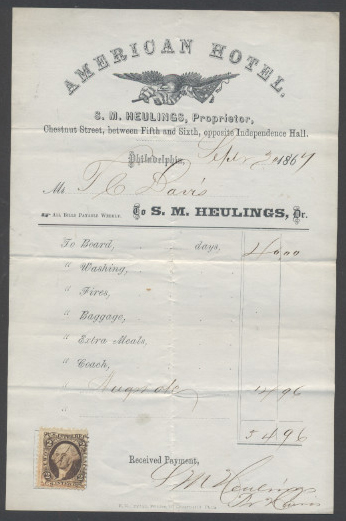 AMERICAN HOTEL.
S. M. HEULINGS, Proprietor,
Chestnut Street, between Fifth and Sixth, opposite Independence Hall.
Philadelphia, Sept 2 1867
Mr T C Davis
All Bills Payable Weekly. To S. M. HEULINGS, Dr.
To Board, days, 40 00
" Washing,
" Fires,
" Baggage,
" Extra Meals,
" Coach,
" 14 96
"
54 96
Received Payment,
S M Heulings